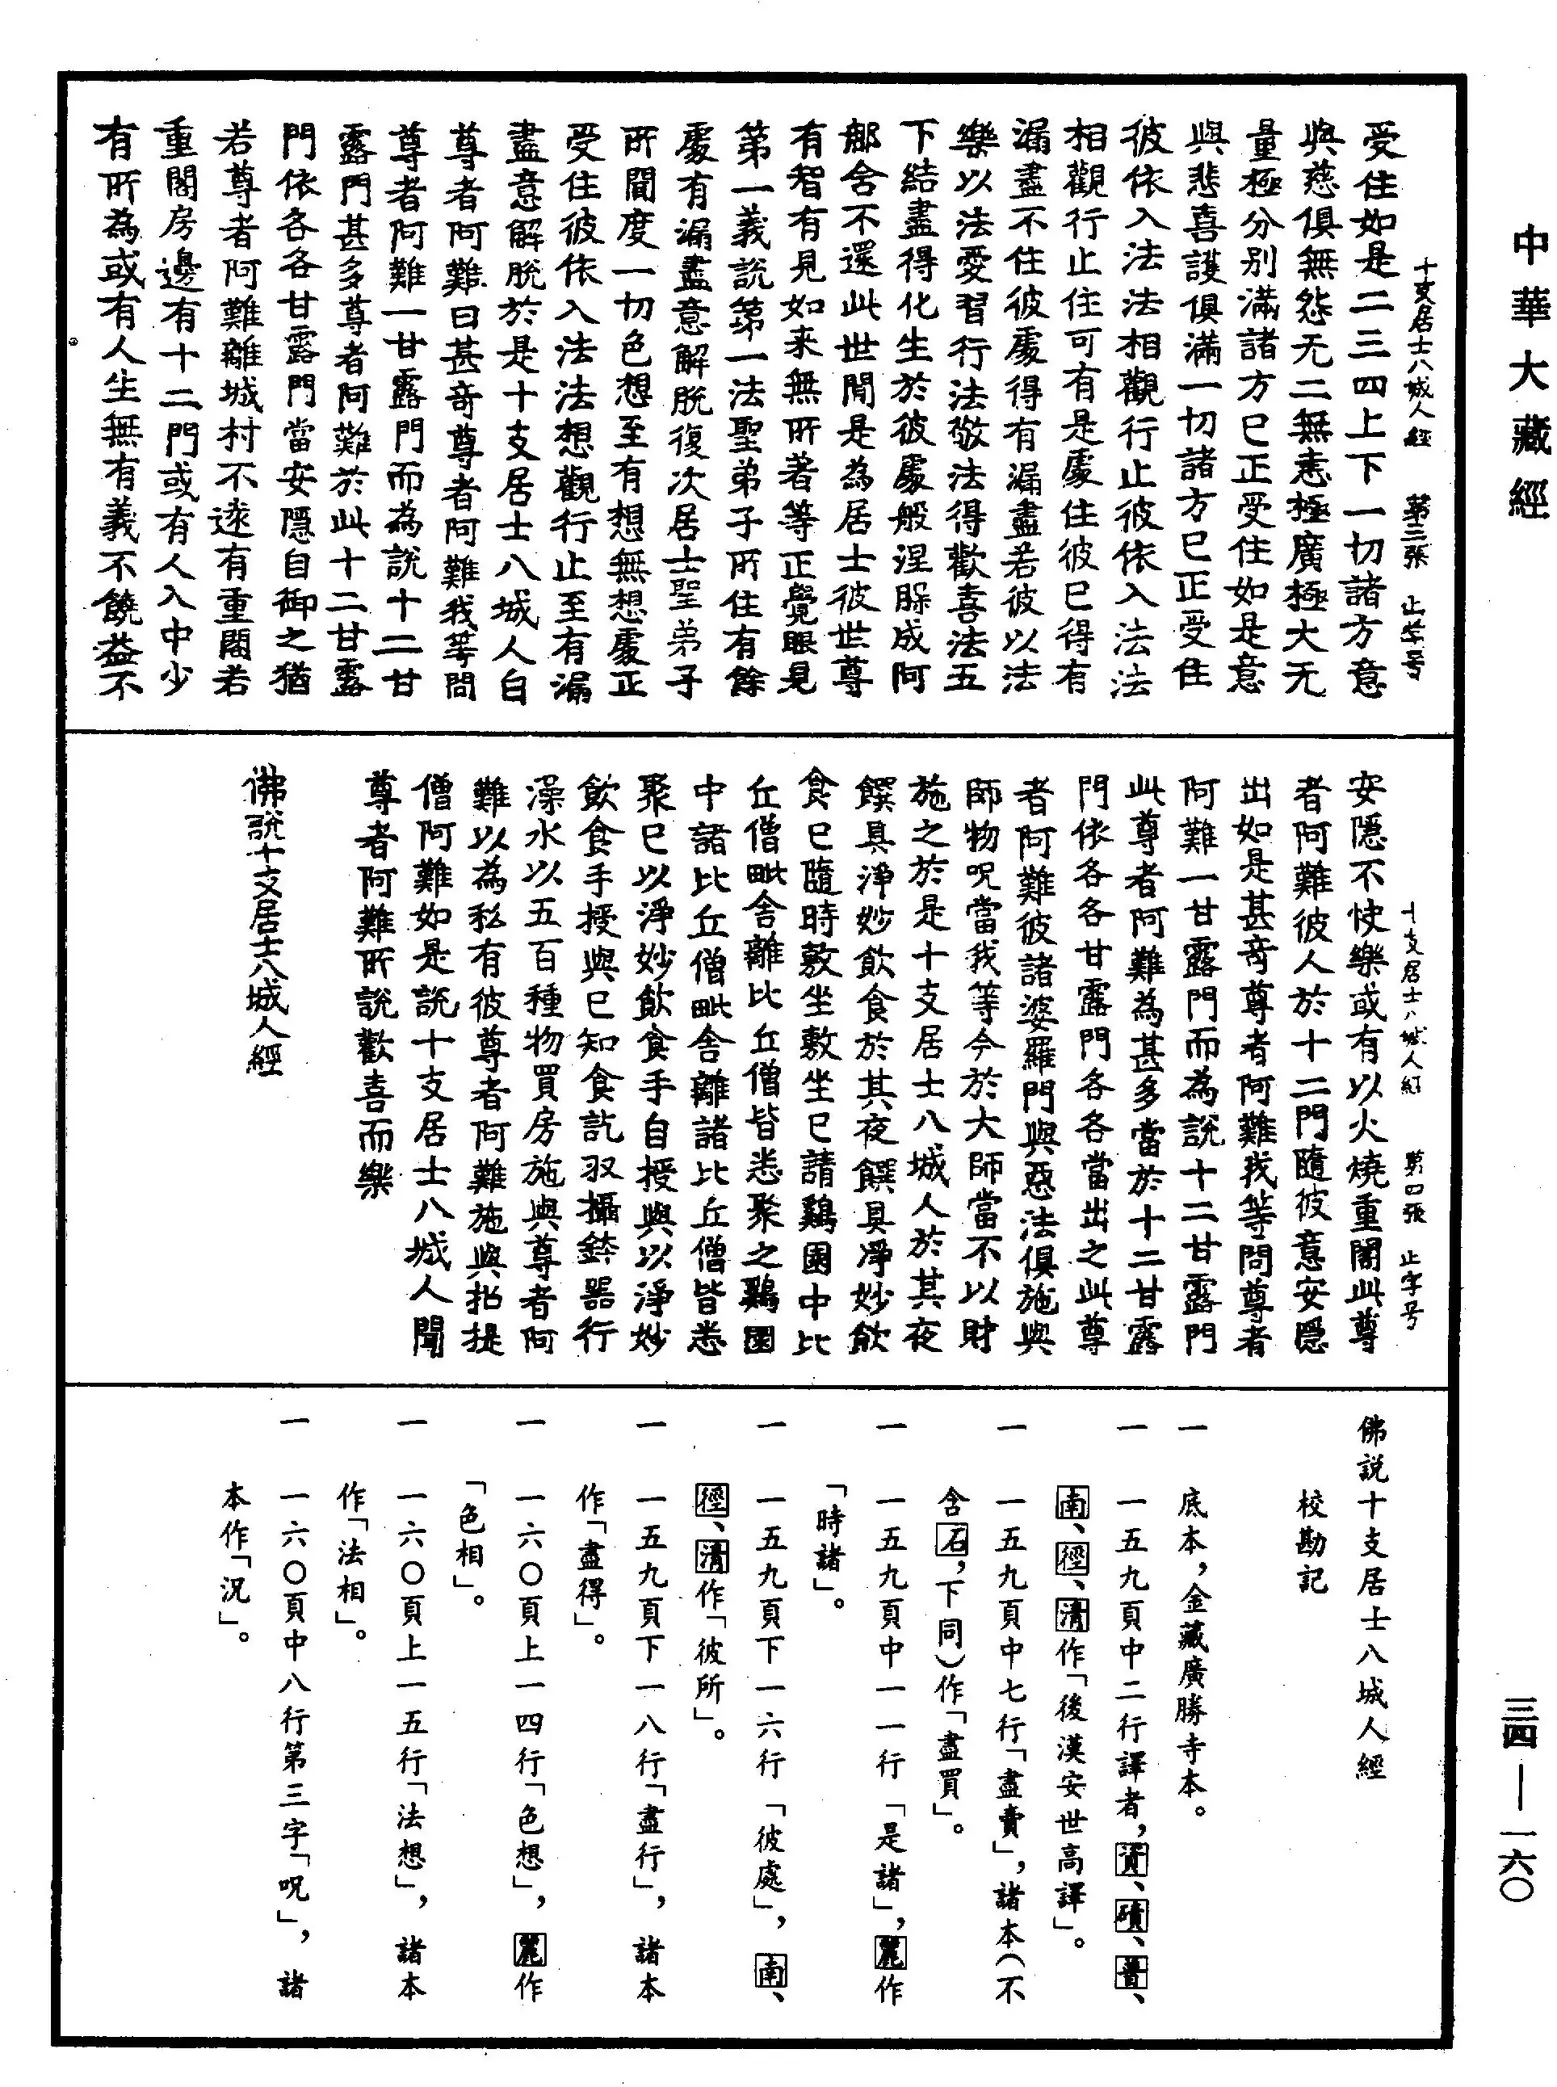 中華大藏經
十支居士八城人經 第三張 止字号
受住如是二三四上下一切諸方意
與慈俱無怨无二無恚極廣極大无
量極分別滿諸方已正受住如是意
與悲喜護俱滿一切諸方已正受住
彼依入法法相觀行止彼依入法法
相觀行止住可有是處住彼已得有
漏盡不住彼處得有漏盡若彼以法
樂以法愛習行法敬法得歡喜法五
下結盡得化生於彼處般涅槃成阿
那含不還此世間是為居士彼世尊
有智有見如来無所著等正覺眼見
第一義說第一法聖弟子所住有餘
處有漏盡意解脫復次居士聖弟子
所聞度一切色想至有想無想處正
受住彼依入法法想觀行止至有漏
盡意解脫於是十支居士八城人白
尊者阿難曰甚奇尊者阿難我等問
尊者阿難一甘露門而為說十二甘
露門甚多尊者阿難於此十二甘露
門依各各甘露門當安隱自御之猶
若尊者阿難離城村不遠有重閣若
重閣房邊有十二門或有人入中少
有所為或有人生無有義不饒益不
十支居士八城人經 第四張 止字号
安隱不快樂或有以火燒重閣此尊
者阿難彼人於十二門隨彼意安隱
出如是甚奇尊者阿難我等問尊者
阿難一甘露門而為說十二甘露門
此尊者阿難為甚多當於十二甘露
門依各各甘露門各各當出之此尊
者阿難彼諸婆羅門與惡法俱施與
師物呪當我等今於大師當不以財
施之於是十支居士八城人於其夜
饌具淨妙飲食於其夜饌具淨妙飲
食已隨時敷坐敷坐已請鷄園中比
丘僧毗舍離比丘僧皆悉聚之鷄園
中諸比丘僧毗舍離諸比丘僧皆悉
聚已以淨妙飲食手自授與以淨妙
飲食手授與已知食訖収攝鉢器行
澡水以五百種物買房施與尊者阿
難以為私有彼尊者阿難施與招提
僧阿難如是說十支居士八城人聞
尊者阿難所說歡喜而樂
佛說十支居士八城人經
佛説十支居士八城人經
校勘記
一 底本，金藏廣勝寺本。
一 一五九頁中二行譯者，資、磧、普、
南、徑、清作「後漢安世高譯」。
一 一五九頁中七行「盡賣」，諸本（不
含石，下同）作「盡買」。
一 一五九頁中一一行「是諸」，麗作
「時諸」。
一 一五九頁下一六行「彼處」，南、
徑、清作「彼所」。
一 一五九頁下一八行「盡行」，諸本
作「盡得」。
一 一六〇頁上一四行「色想」，麗作
「色相」。
一 一六〇頁上一五行「法想」，諸本
作「法相」。
一 一六〇頁中八行第三字「呪」，諸
本作「況」。
三四—一六〇